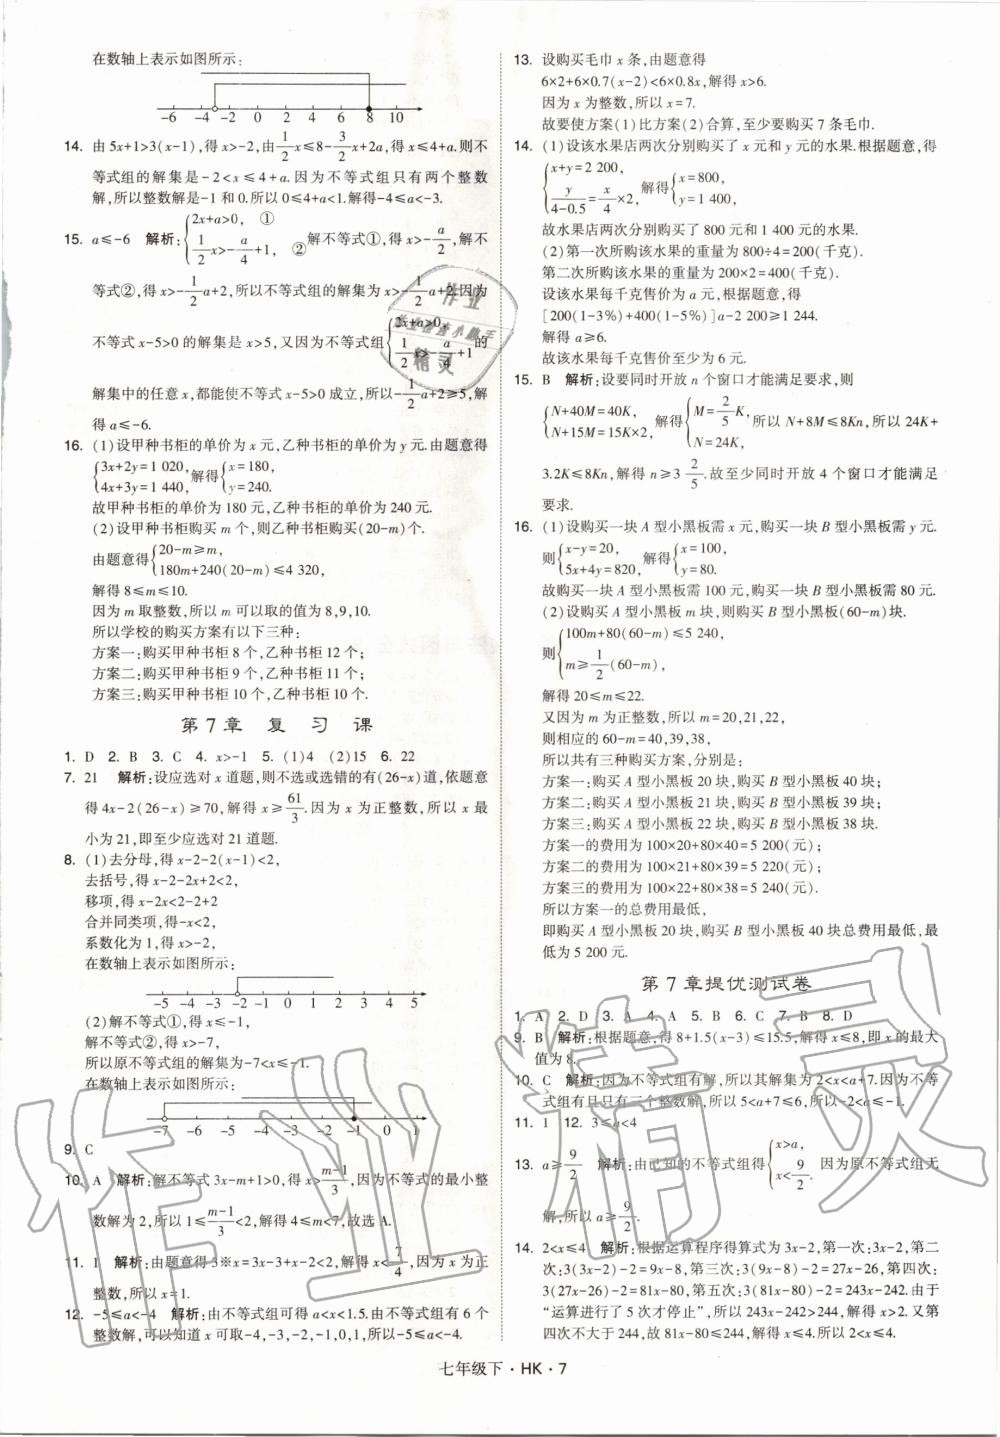 在数轴上表示如图所示:
-6 -4 -2 0 2 4 6 8 10
14. 由 5x+1>3(x-1),得 x>-2,由 1/2 x≤8- 3/2 x+2a,得 x≤4+a.则不
等式组的解集是-2<x≤4+a.因为不等式组只有两个整数
解,所以整数解是-1 和 0.所以 0≤4+a<1.解得-4≤a<-3.
15. a≤-6 解析: {2x+a>0, ① 1/2 x>- a/4 +1, ② 解不等式①,得 x>- a/2,解不
等式②,得 x>- 1/2 a+2,所以不等式组的解集为 x>- 1/2 a+2.因为
不等式 x-5>0 的解集是 x>5,又因为不等式组 {2x+a>0, 1/2 x>- a/4 +1 的
解集中的任意 x,都能使不等式 x-5>0 成立,所以- 1/2 a+2≥5,解
得 a≤-6.
16. (1)设甲种书柜的单价为 x 元,乙种书柜的单价为 y 元.由题意得
{3x+2y=1 020, 4x+3y=1 440, 解得 {x=180, y=240.
故甲种书柜的单价为 180 元,乙种书柜的单价为 240 元.
(2)设甲种书柜购买 m 个,则乙种书柜购买(20-m)个.
由题意得 {20-m≥m, 180m+240(20-m)≤4 320,
解得 8≤m≤10.
因为 m 取整数,所以 m 可以取的值为 8,9,10.
所以学校的购买方案有以下三种:
方案一:购买甲种书柜 8 个,乙种书柜 12 个;
方案二:购买甲种书柜 9 个,乙种书柜 11 个;
方案三:购买甲种书柜 10 个,乙种书柜 10 个.
第 7 章 复 习 课
1. D 2. B 3. C 4. x>-1 5. (1)4 (2)15 6. 22
7. 21 解析:设应选对 x 道题,则不选或选错的有(26-x)道,依题意
得 4x-2(26-x)≥70,解得 x≥ 61/3.因为 x 为正整数,所以 x 最
小为 21,即至少应选对 21 道题.
8. (1)去分母,得 x-2-2(x-1)<2,
去括号,得 x-2-2x+2<2,
移项,得 x-2x<2-2+2
合并同类项,得-x<2,
系数化为 1,得 x>-2,
在数轴上表示如图所示:
-5 -4 -3 -2 -1 0 1 2 3 4 5
(2)解不等式①,得 x≤-1,
解不等式②,得 x>-7,
所以原不等式组的解集为-7<x≤-1.
在数轴上表示如图所示:
-7 -6 -5 -4 -3 -2 -1 0 1
9. C
10. A 解析:解不等式 3x-m+1>0,得 x> m-1/3,因为不等式的最小整
数解为 2,所以 1≤ m-1/3 <2,解得 4≤m<7,故选 A.
11. 1 解析:由题意得 3※x=3x-3+x-2<2,解得 x< 7/4,因为 x 为正
整数,所以 x=1.
12. -5≤a<-4 解析:由不等式组可得 a<x<1.5.因不等式组有 6 个
整数解,可以知道 x 可取-4,-3,-2,-1,0,1,所以-5≤a<-4.
13. 设购买毛巾 x 条,由题意得
6×2+6×0.7(x-2)<6×0.8x,解得 x>6.
因为 x 为整数,所以 x=7.
故要使方案(1)比方案(2)合算,至少要购买 7 条毛巾.
14. (1)设该水果店两次分别购买了 x 元和 y 元的水果.根据题意,得
{x+y=2 200, y/4-0.5 = x/4 ×2, 解得 {x=800, y=1 400,
故水果店两次分别购买了 800 元和 1 400 元的水果.
(2)第一次所购该水果的重量为 800÷4=200(千克).
第二次所购该水果的重量为 200×2=400(千克).
设该水果每千克售价为 a 元,根据题意,得
[200(1-3%)+400(1-5%)]a-2 200≥1 244.
解得 a≥6.
故该水果每千克售价至少为 6 元.
15. B 解析:设要同时开放 n 个窗口才能满足要求,则
{N+40M=40K, N+15M=15K×2, 解得 {M= 2/5 K, N=24K, 所以 N+8M≤8Kn,所以 24K+
3.2K≤8Kn,解得 n≥3 2/5.故至少同时开放 4 个窗口才能满足
要求.
16. (1)设购买一块 A 型小黑板需 x 元,购买一块 B 型小黑板需 y 元.
则 {x-y=20, 5x+4y=820, 解得 {x=100, y=80.
故购买一块 A 型小黑板需 100 元,购买一块 B 型小黑板需 80 元.
(2)设购买 A 型小黑板 m 块,则购买 B 型小黑板(60-m)块.
则 {100m+80(60-m)≤5 240, m≥ 1/2 (60-m),
解得 20≤m≤22.
又因为 m 为正整数,所以 m=20,21,22,
则相应的 60-m=40,39,38,
所以共有三种购买方案,分别是:
方案一:购买 A 型小黑板 20 块,购买 B 型小黑板 40 块;
方案二:购买 A 型小黑板 21 块,购买 B 型小黑板 39 块;
方案三:购买 A 型小黑板 22 块,购买 B 型小黑板 38 块.
方案一的费用为 100×20+80×40=5 200(元);
方案二的费用为 100×21+80×39=5 220(元);
方案三的费用为 100×22+80×38=5 240(元).
所以方案一的总费用最低,
即购买 A 型小黑板 20 块,购买 B 型小黑板 40 块总费用最低,最
低为 5 200 元.
第 7 章提优测试卷
1. A 2. D 3. A 4. A 5. B 6. C 7. B 8. D
9. B 解析:根据题意,得 8+1.5(x-3)≤15.5,解得 x≤8,即 x 的最大
值为 8.
10. C 解析:因为不等式组有解,所以其解集为 2<x<a+7.因为不等
式组有且只有三个整数解,所以 5<a+7≤6,所以-2<a≤-1.
11. 1 12. 3≤a<4
13. a≥ 9/2 解析:由已知的不等式组得 {x>a, x< 9/2. 因为原不等式组无
解,所以 a≥ 9/2.
14. 2<x≤4 解析:根据运算程序得算式为 3x-2,第一次:3x-2,第二
次:3(3x-2)-2=9x-8,第三次:3(9x-8)-2=27x-26,第四次:
3(27x-26)-2=81x-80,第五次:3(81x-80)-2=243x-242.由于
“运算进行了 5 次才停止”,所以 243x-242>244,解得 x>2.又第
四次不大于 244,故 81x-80≤244,解得 x≤4.所以 2<x≤4.
七年级下·HK·7
作业精灵
作业
精灵